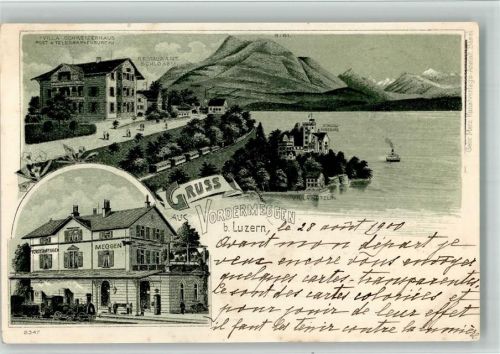 VILLA SCHWEIZERHAUS
POST & TELEGRAPHENBUREAU
RESTAURANT
SCHLÖSSLI
RIGI.
GRUSS
AUS VORDERMEGGEN
b. Luzern,
VORDERMEGGEN
MEGGEN
2347
le 28 août 1900
Avant mon départ je
veux encore vous envoyer
quelques cartes transparentes
ce sont des cartes coloriées et
pour jouir de leur effet
il faut les tenir contre la lumière